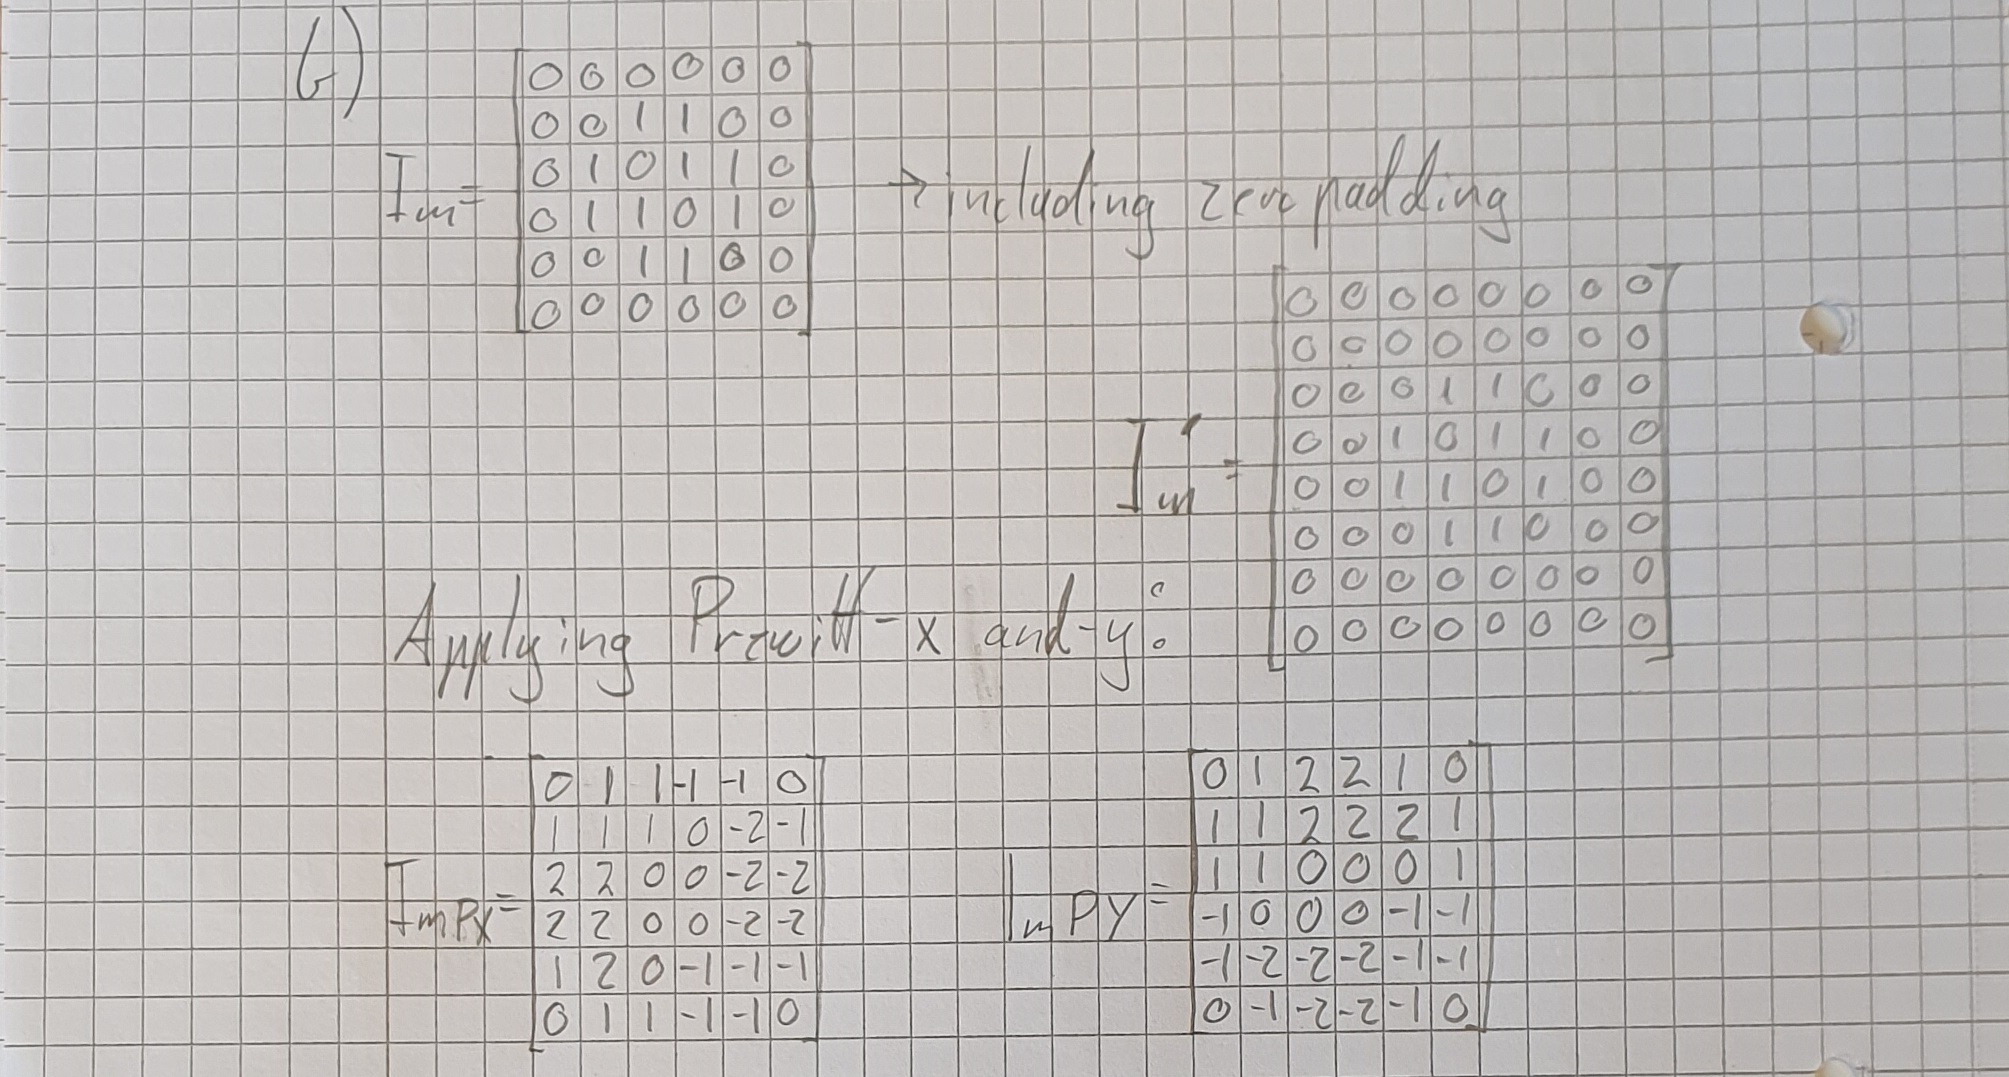 b)
Im = [0 0 0 0 0 0
0 0 1 1 0 0
0 1 0 1 1 0
0 1 1 0 1 0
0 0 1 1 0 0
0 0 0 0 0 0]
→ including zero padding
Im' = [0 0 0 0 0 0 0 0
0 0 0 0 0 0 0 0
0 0 0 1 1 0 0 0
0 0 1 0 1 1 0 0
0 0 1 1 0 1 0 0
0 0 0 1 1 0 0 0
0 0 0 0 0 0 0 0
0 0 0 0 0 0 0 0]
Applying Prewitt-x and -y:
ImPX = [0 1 1 -1 -1 0
1 1 1 0 -2 -1
2 2 0 0 -2 -2
2 2 0 0 -2 -2
1 2 0 -1 -1 -1
0 1 1 -1 -1 0]
ImPY = [0 1 2 2 1 0
1 1 2 2 2 1
1 1 0 0 0 1
-1 0 0 0 -1 -1
-1 -2 -2 -2 -1 -1
0 -1 -2 -2 -1 0]